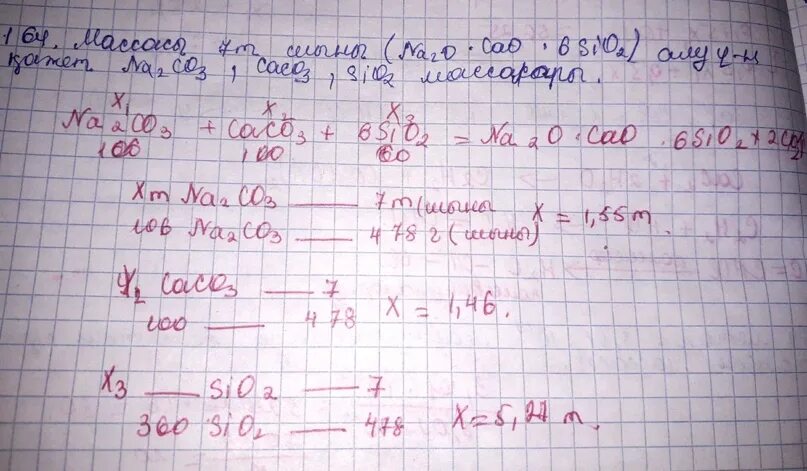 164. Массасы 7т шыны (Na2O · CaO · 6SiO2) алу ү-н
қажет Na2CO3, CaCO3, SiO2 массалары.
X1 X2 X3
Na2CO3 + CaCO3 + 6SiO2 = Na2O · CaO · 6SiO2 + 2CO2
106 100 60
Xт Na2CO3 — 7т (шыны) X = 1,55т.
106 Na2CO3 — 478 г (шыны)
X2 CaCO3 — 7
100 — 478 X = 1,46.
X3 — SiO2 — 7
360 SiO2 — 478 X = 5,27 т.